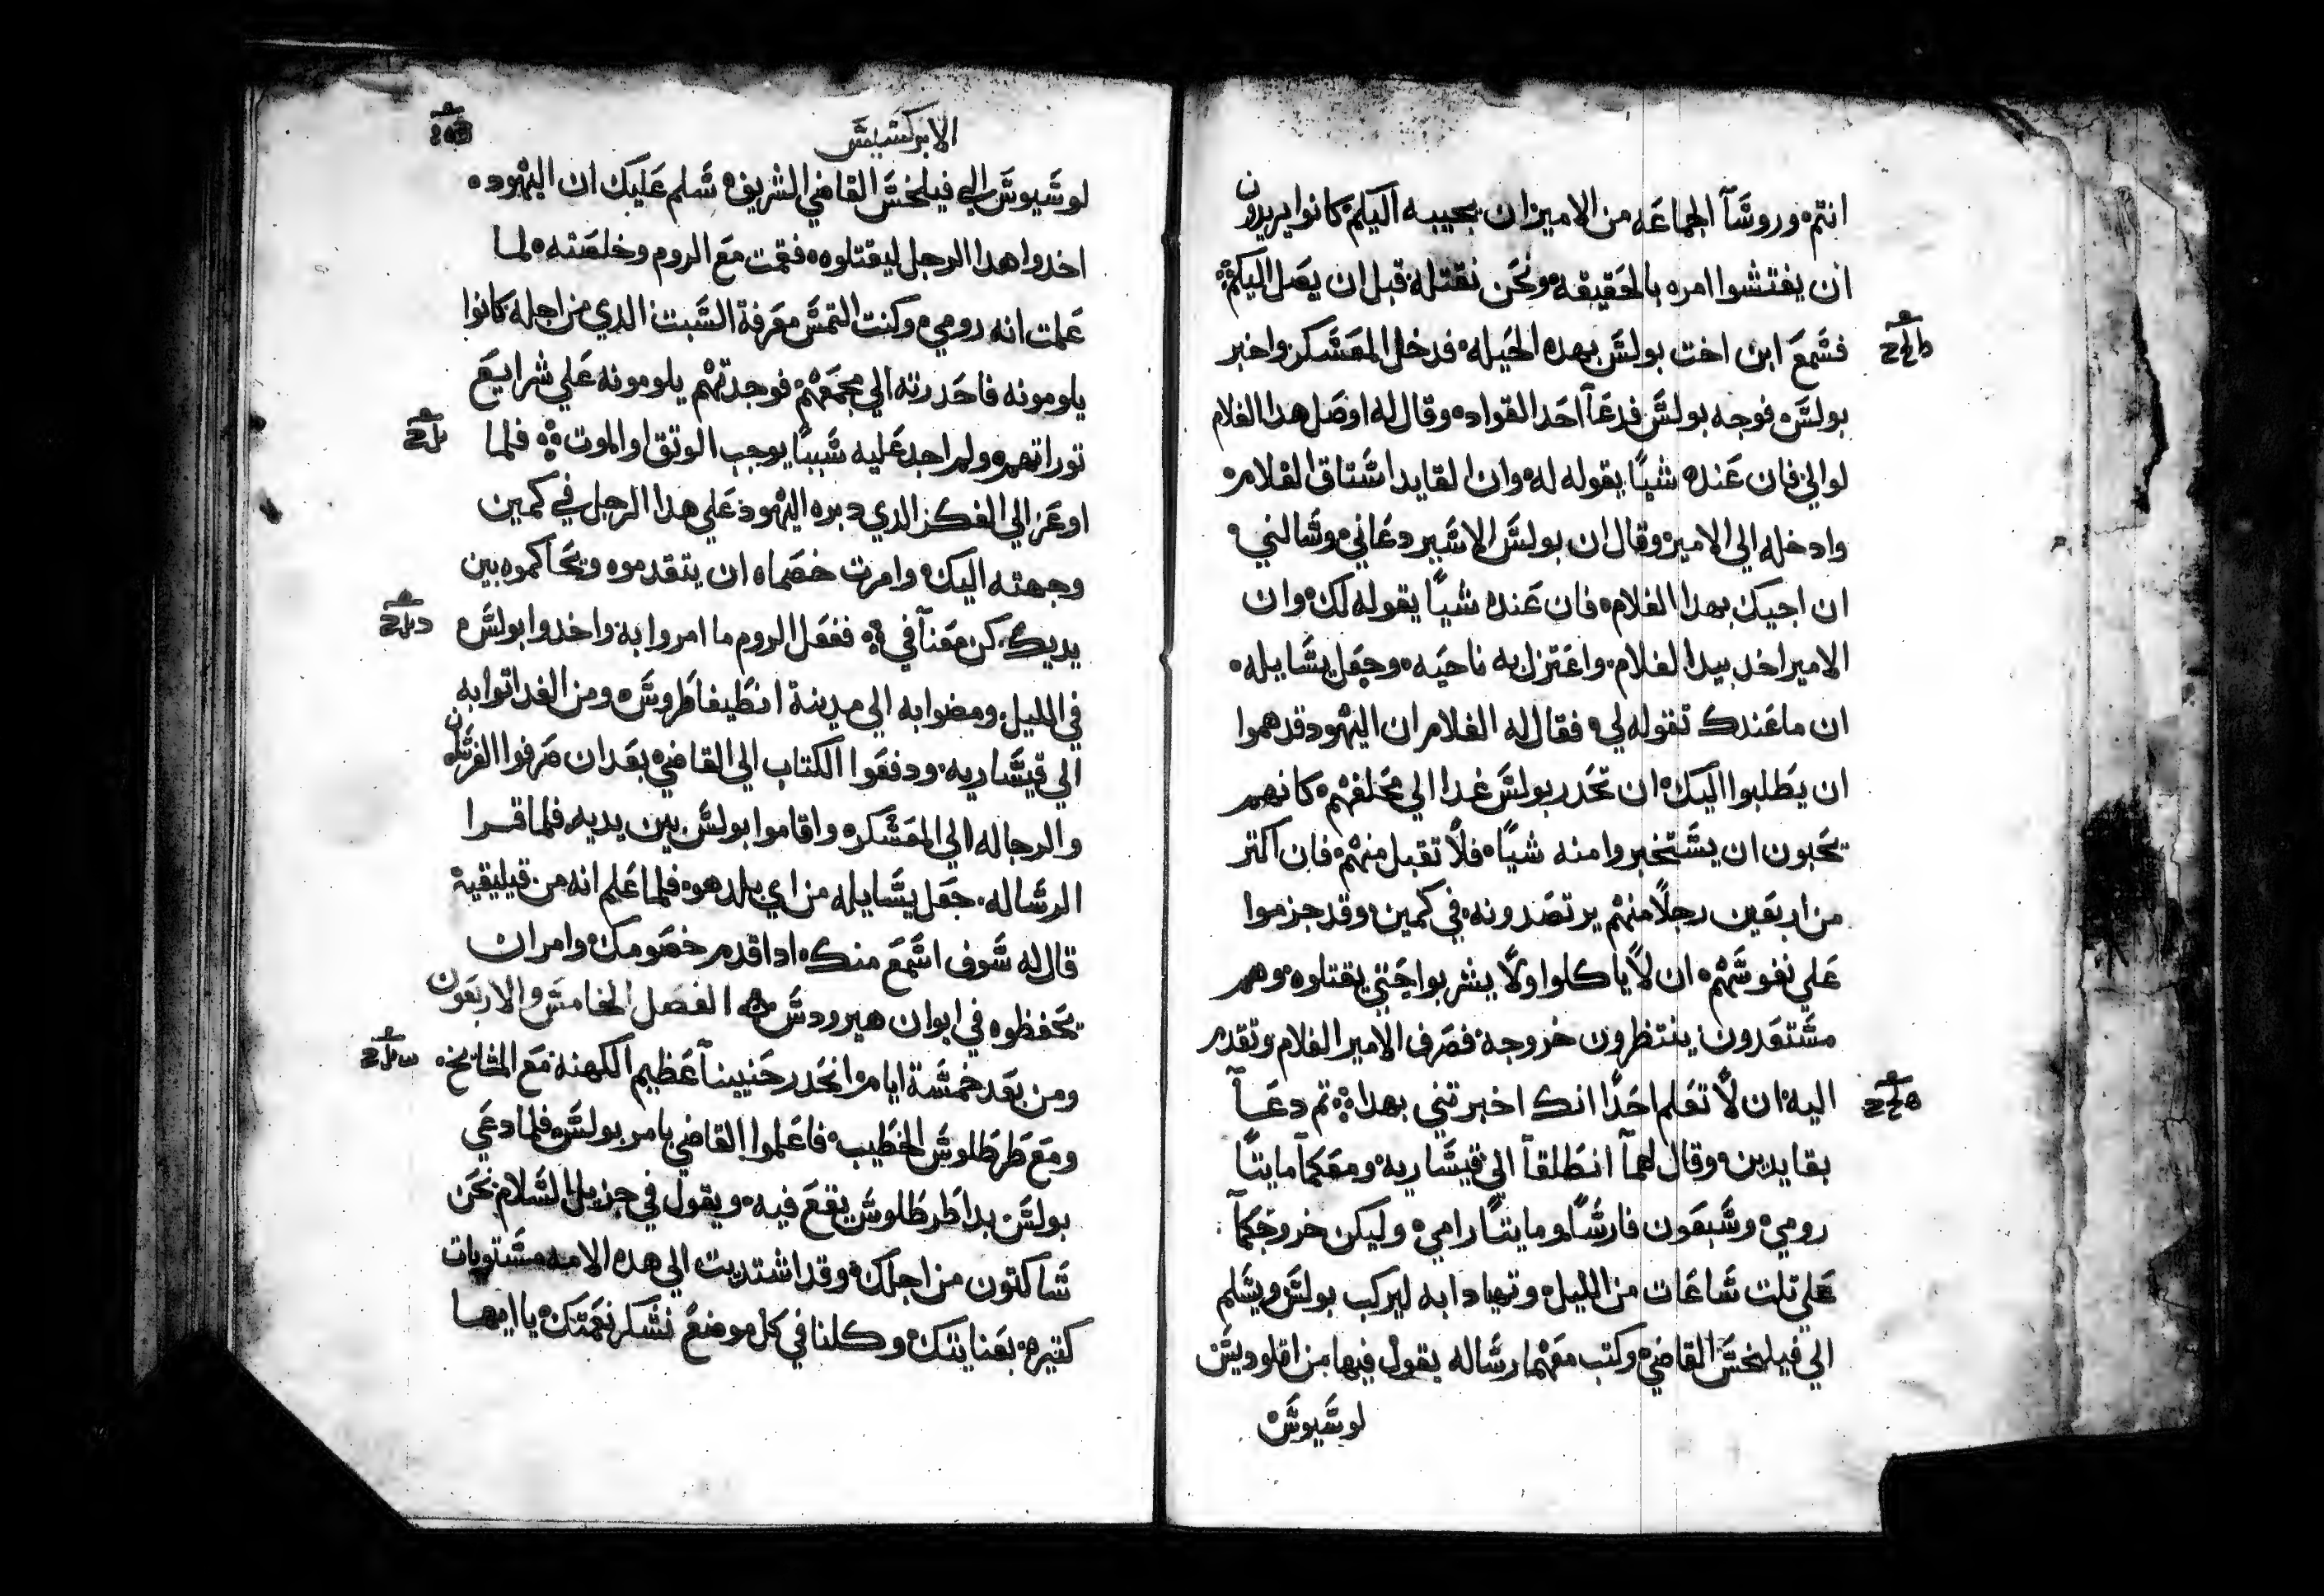 انتم وروشآ الجماعه من الامير ان يجيبه اليكم كانوا يريدون
ان يفتشوا امره بالحقيقه ونحن نقتله قبل ان يصل اليكم
فشمع ابن اخت بولش بهده الحيله فدخل المعشكر واخبر
بولش فوجه بولش فدعآ احد القواد وقال له اوصل هدا الغلام
لوالي فان عنده شيا يقوله له وان القايد اشتاق الغلام
وادخله الي الامير وقال ان بولش الاشير دعاني وشالني
ان اجيك بهدا الغلام فان عنده شيا يقوله لك وان
الامير اخد بيد الغلام واعتزل به ناحيه وجعل يشايله
ان ما عندك تقوله لي فقال له الغلام ان اليهود قد هموا
ان يطلبوا اليك ان تحدر بولش غدا الي محفلهم كانهم
يحبون ان يشتخبروا منه شيا فلا تقبل منهم فان اكتر
من اربعين رجلا منهم يرتصدونه في كمين وقد جزموا
علي نفوشهم ان لا ياكلوا ولا يشربوا حتي يقتلوه وهم
مشتعدون ينتظرون خروجه فصرف الامير الغلام وتقدم
اليه ان لا تعلم احدا انك اخبرتني بهدا تم دعآ
بقايدين وقال لهمآ انطلقآ الي قيشاريه ومعكمآ مايتا
رومي وشبعون فارشا ومايتا رامي وليكن خروجكمآ
علي تلت شاعات من الليل وتهيا دابه ليركب بولش ويشلم
الي فيلخش القاضي وكتب معهما رشاله يقول فيها من اقلوديش
لوشيوش
الابركشيش
لوشيوش الي فيلخش القاضي الشريف شلم عليك ان اليهود
اخدوا هدا الرجل ليقتلوه فقمت مع الروم وخلصته لما
علمت انه رومي وكنت التمش معرفة الشبت الدي من اجله كانوا
يلومونه فاحدرته الي مجمعهم فوجدتهم يلومونه علي شرايع
توراتهم ولم اجد عليه شببا يوجب الوتق او الموت فلما
اوعز الي الفكر الدي دبره اليهود علي هدا الرجل في كمين
وجهته اليك وامرت خصماه ان يتقدموه ويحاكموه بين
يديك كن معنآفي ففعل الروم ما امروا به واخدوا بولش
في الليل ومضوا به الي مدينة انطيفاطروش ومن الغد اتوا به
الي قيشاريه ودفعوا الكتاب الي القاضي بعد ان صرفوا الفرشان
والرجاله الي المعشكر واقاموا بولش بين يديه فلما قرا
الرشاله جعل يشايله من اي بلد هو فلما علم انه من قيليقية
قال له شوف اشمع منك ادا قدم خصومك وامر ان
يحفظوه في ايوان هيرودش الفصل الخامش والاربعون
ومن بعد خمشة ايام انحدر حنينيآ عظيم الكهنة مع المشايخ
ومع طرطلوش الخطيب فاعلموا القاضي بامر بولش فلما دعي
بولش بدا طرطلوش يقع فيه ويقول في جزيل الشلام نحن
شاكتون من اجلك وقد اشتديت الي هده الامه مشتويات
كتيره بعنايتك وكلنا في كل موضع نشكر نعمتك يا ايها